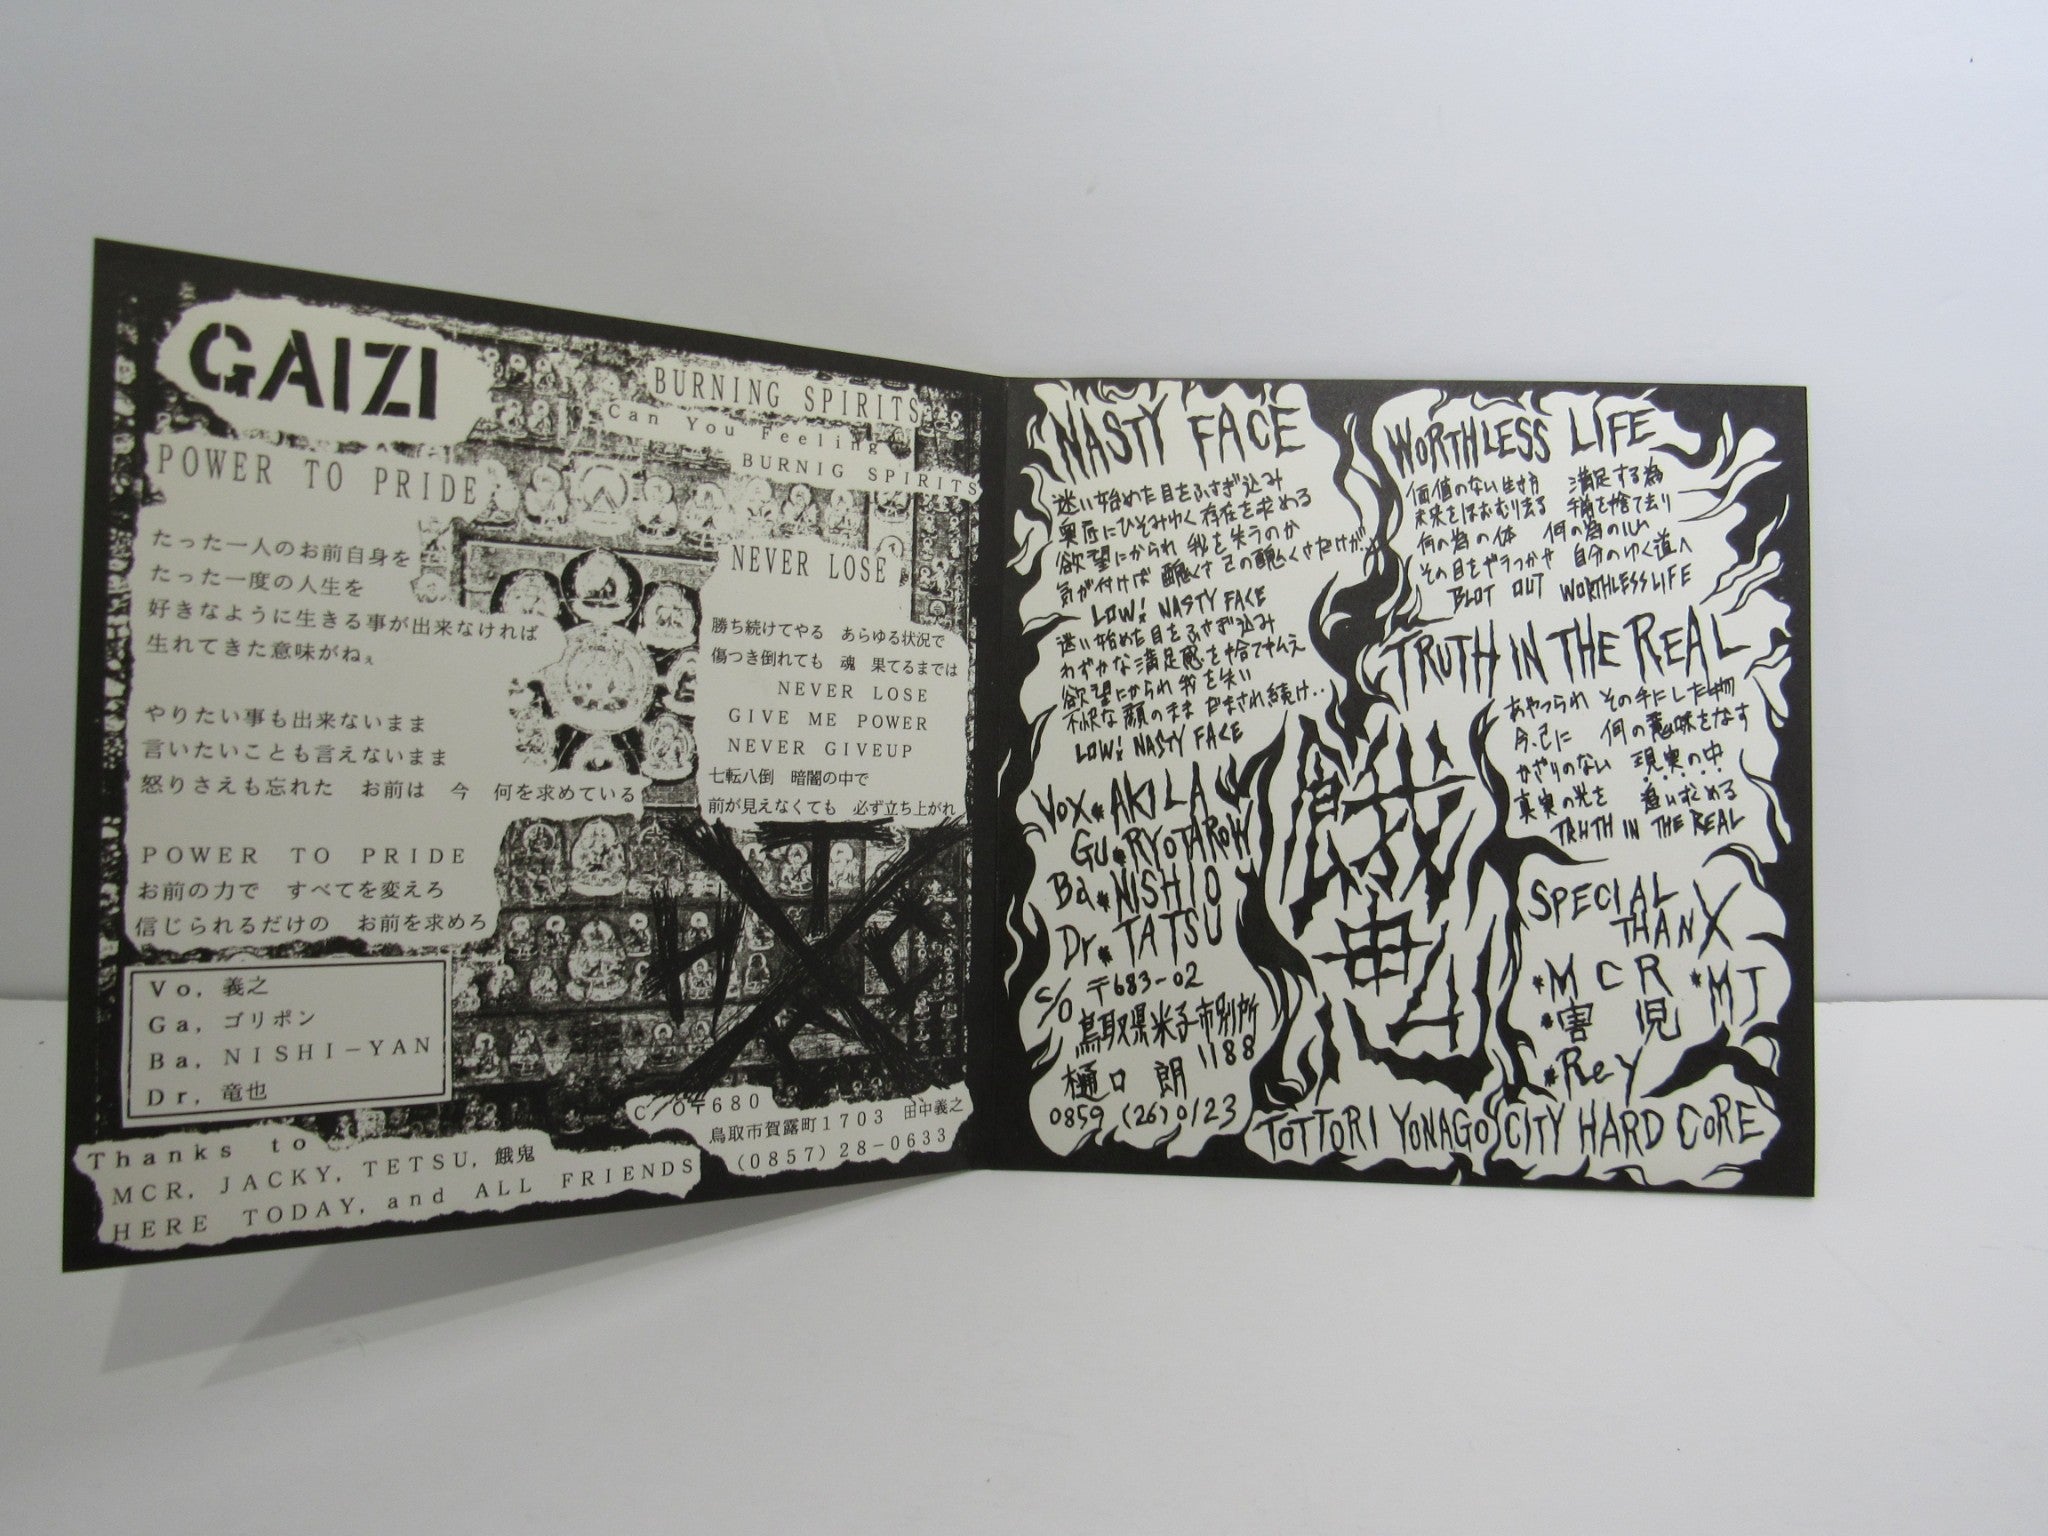 GAIZI
POWER TO PRIDE
たった一人のお前自身を
たった一度の人生を
好きなように生きる事が出来なければ
生れてきた意味がねぇ
やりたい事も出来ないまま
言いたいことも言えないまま
怒りさえも忘れた お前は 今 何を求めている
POWER TO PRIDE
お前の力で すべてを変えろ
信じられるだけの お前を求めろ
Vo, 義之
Ga, ゴリポン
Ba, NISHI-YAN
Dr, 竜也
Thanks to
MCR, JACKY, TETSU, 餓鬼
HERE TODAY, and ALL FRIENDS
BURNING SPIRITS
Can You Feeling
BURNIG SPIRITS
NEVER LOSE
勝ち続けてやる あらゆる状況で
傷つき倒れても 魂 果てるまでは
NEVER LOSE
GIVE ME POWER
NEVER GIVEUP
七転八倒 暗闇の中で
前が見えなくても 必ず立ち上がれ
HATE
C/O〒680
鳥取市賀露町1703 田中義之
(0857)28-0633
NASTY FACE
迷い始めた目をふさぎ込み
奥底にひそみゆく存在を求める
欲望にかられ 我を失うのか
気が付けば 醜くさ 己の醜くさだけが
LOW! NASTY FACE
迷い始めた目をふさぎ込み
わずかな満足感を捨て
欲望にかられ 我を失い
不快な顔のまま だまされ続け..
LOW! NASTY FACE
VOX*AKILA
GU*RYOTAROW
Ba*NISHIO
Dr*TATSU
c/o 〒683-02
鳥取県米子市別所
1188
樋口 朗
0859 (26) 0123
WORTHLESS LIFE
価値のない生き方 満足する為
未来をほおむり去る 手前を捨て去り
何の為の体 何の為の心
その目をやきつかせ 自分のゆく道へ
BLOT OUT WORTHLESS LIFE
TRUTH IN THE REAL
あやつられ その手にした物
今、己に 何の意味をなす
かざりのない 現実の中
真実の光を 追い求める
TRUTH IN THE REAL
SPECIAL
THANX
*MCR *MJ
*害児
*Rey
TOTTORI YONAGO CITY HARD CORE